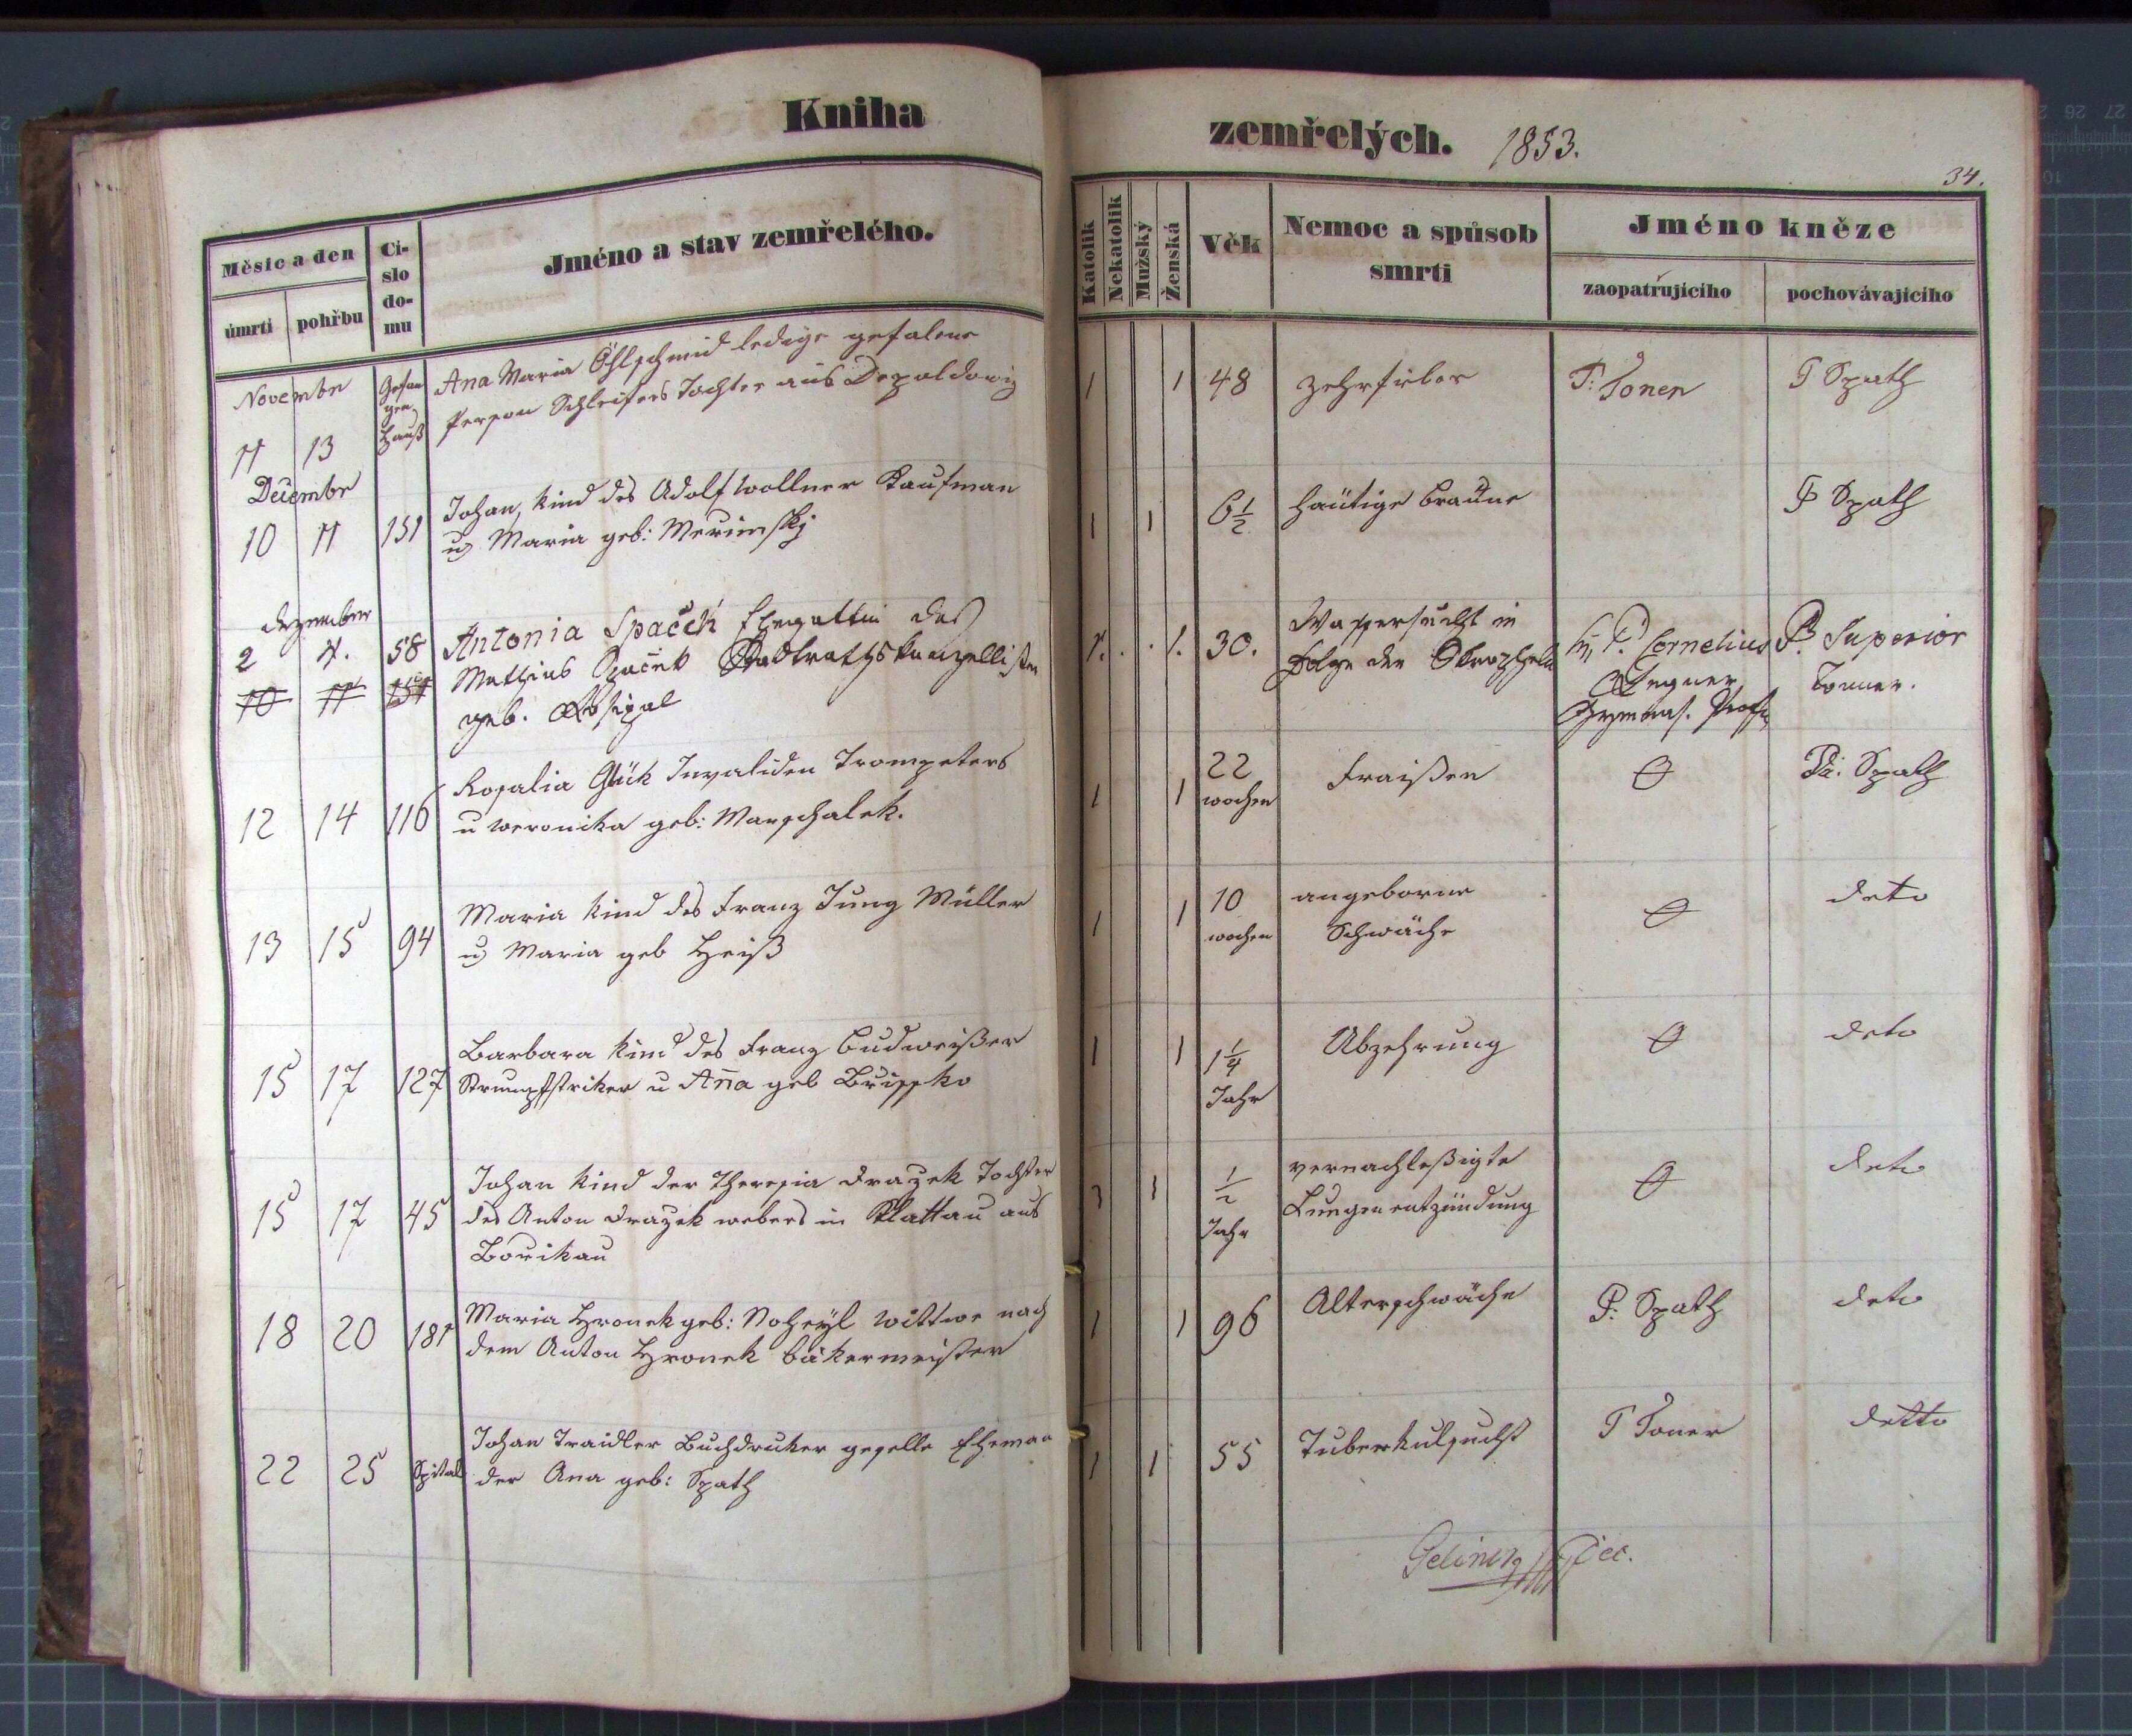 Kniha
zemřelých. 1853.
34.
Měsíc a den
úmrtí
pohřbu
Čí-
slo
do-
mu
Jméno a stav zemřelého.
Katolík
Nekatolík
Mužský
Ženská
Věk
Nemoc a spůsob
smrti
Jméno kněze
zaopatřujícího
pochovávajícího
Novembr
11 13
Gefan
gen
Hauß
Ana Maria Öhlschmid ledige gefalene
Person Schleifers Tochter aus Depoldowiz
1 1 48 Zehrfieber P: Toner P Spath
Decembr
10 11 151 Johan, Kind des Adolf Wollner Kaufman
u Maria geb:
1 1 6½ häutige Bräune P Spath
Dezember
2 4. 58 Antonia Spaček Ehegattin des
10 11 151 Mathias Spaček Stadtrathskanzellisten
geb.
1. . . 1. 30. Wassersucht in
Folge der
P. Cornelius
Gymnas. Prof.
P. Superior
Tonner.
12 14 116 Rosalia Glük Invaliden Trompeters
u Weronika geb: Marschalek.
1 1 22
wochen
Fraißen 0 P: Spath
13 15 94 Maria Kind des Franz Jung Müller
u Maria geb Heiß
1 1 10
wochen
angeborne
Schwäche
0 deto
15 17 127 Barbara Kind des Franz Budweißer
Strumpfstriker u Ana geb
1 1 1¼
Jahr
Abzehrung 0 deto
15 17 45 Johan Kind der Theresia Drazek Tochter
des Anton Drazek webers in Klattau aus
Bořikau
1 1 ½
Jahr
vernachleßigte
Lungenentzündung
0 deto
18 20 181 Maria Hronek geb: Noheyl Wittwe nach
dem Anton Hronek bäkermeister
1 1 96 Alterschwäche P. Spath deto
22 25 Spital Johan Traidler Buchdruker geselle Eheman
der Ana geb: Spath
1 1 55 Tuberkulsucht P Toner detto